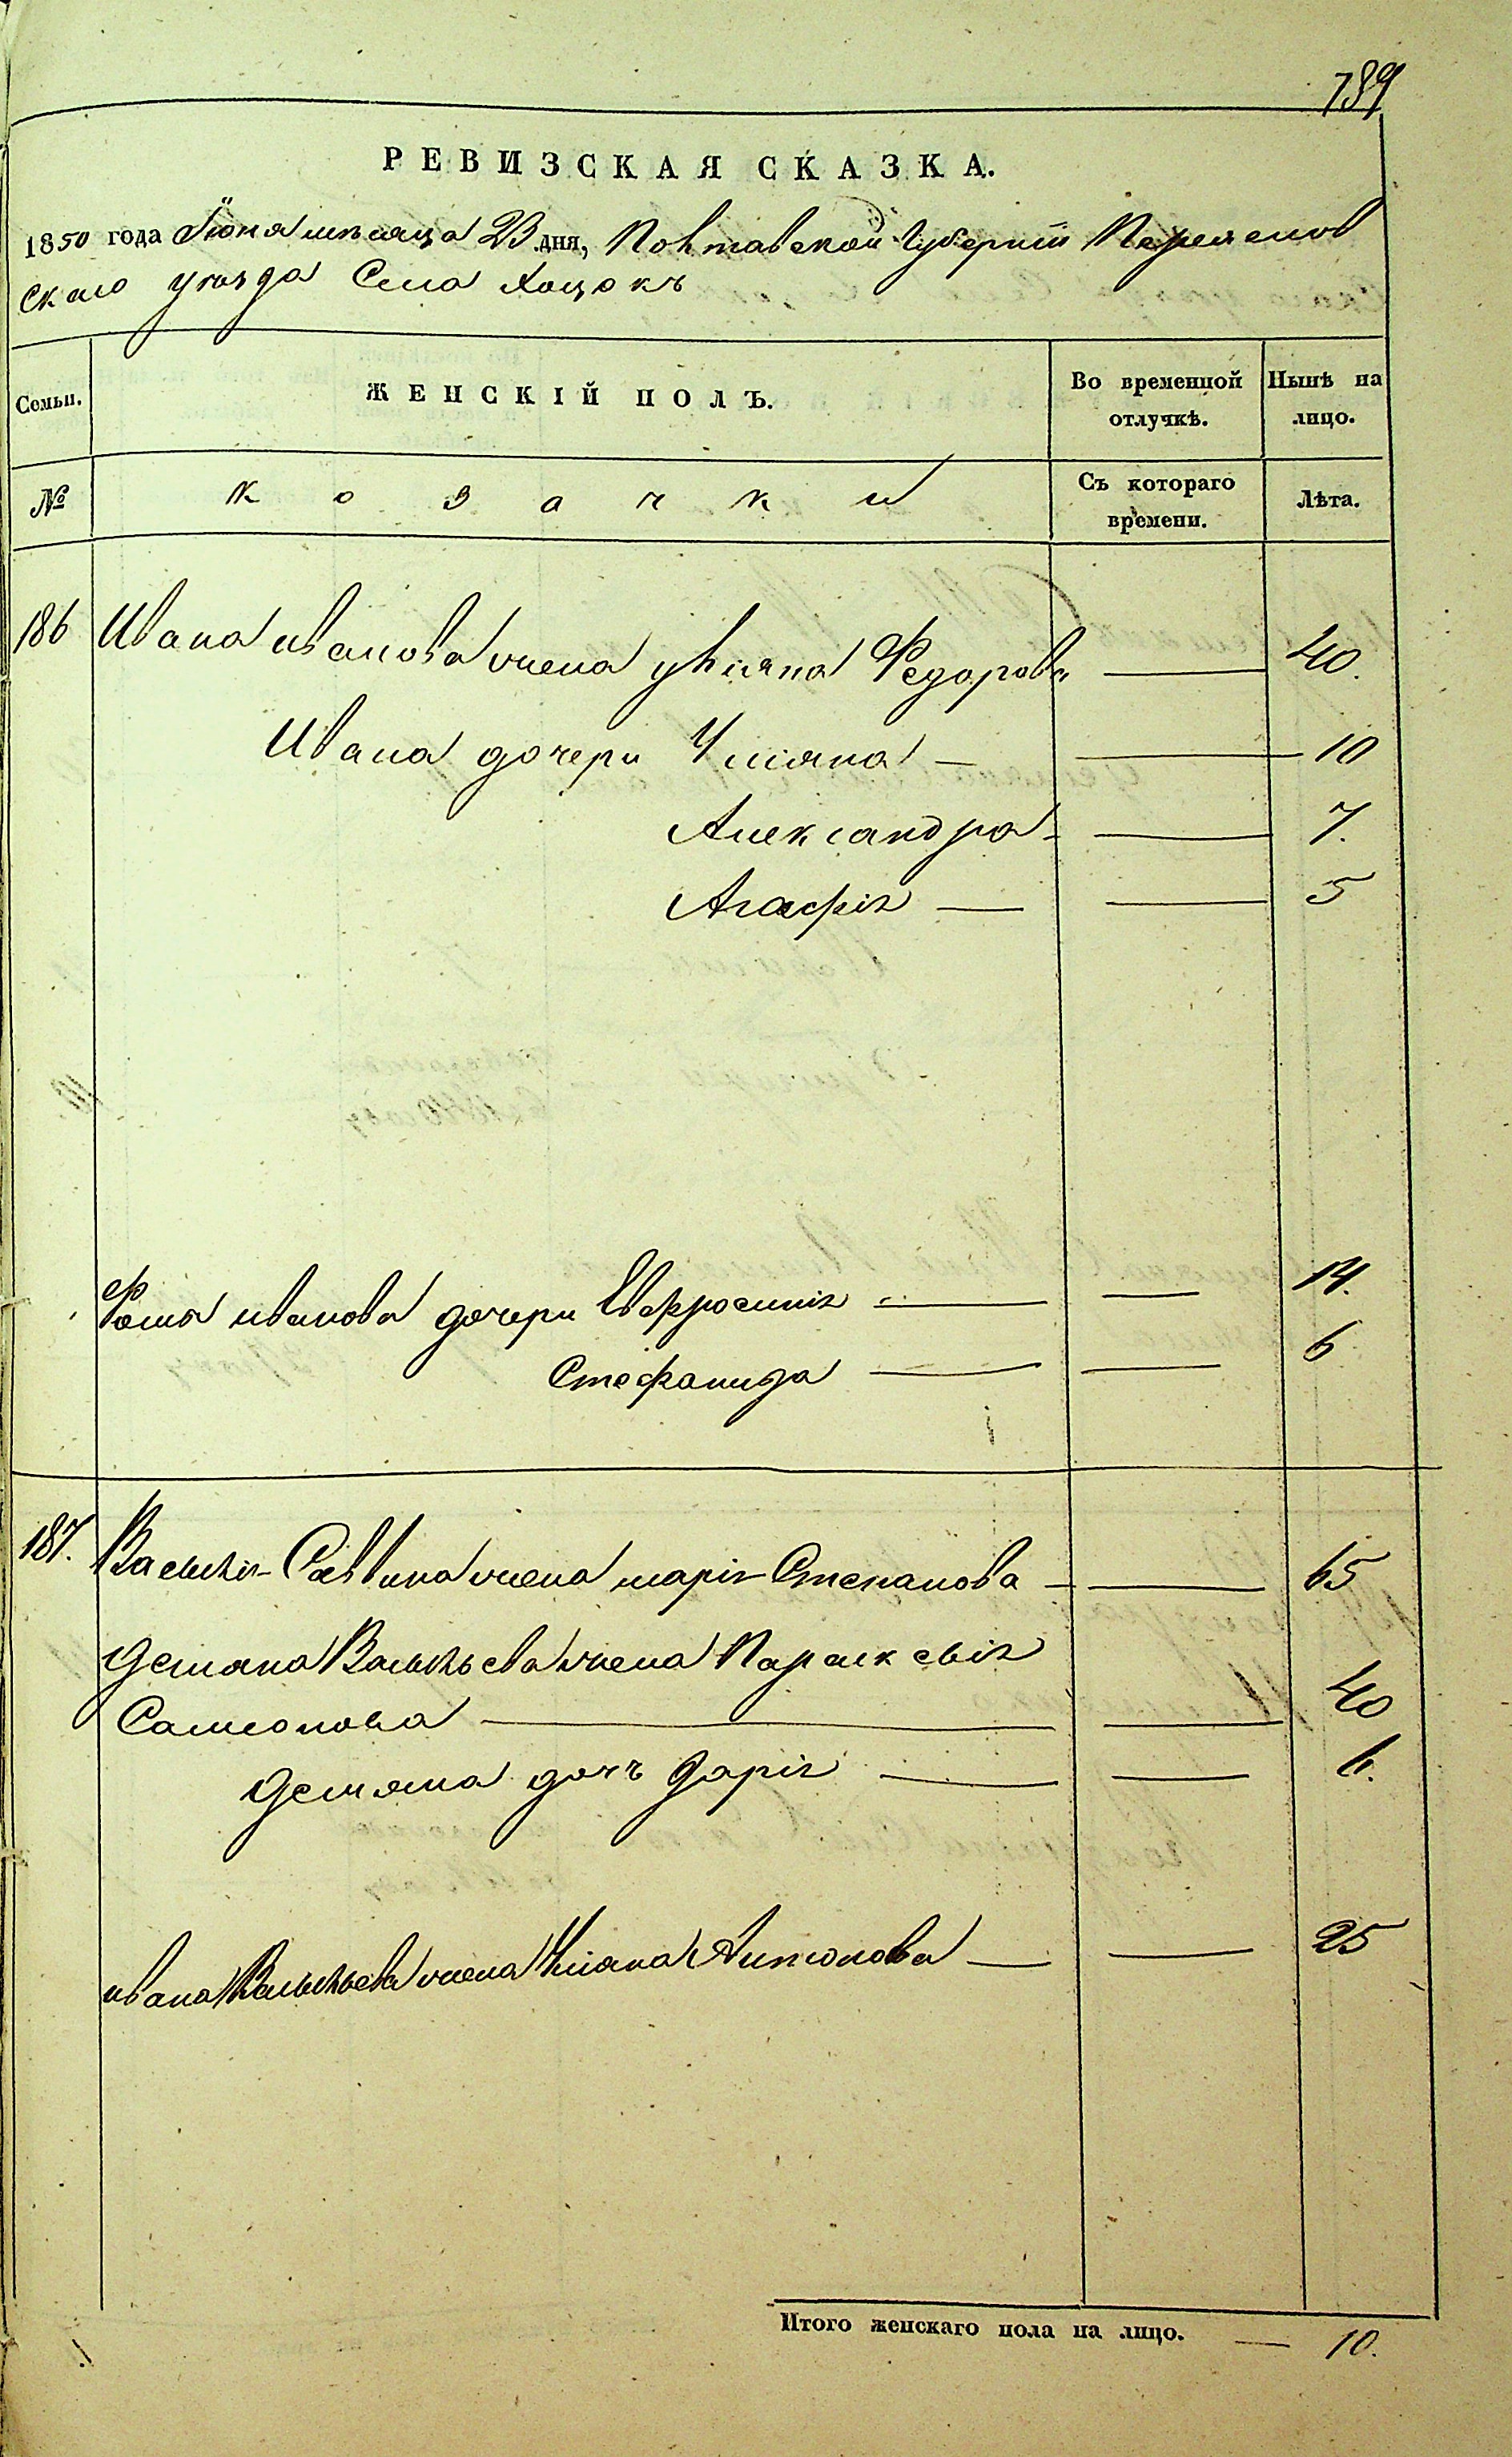 789
РЕВИЗСКАЯ СКАЗКА.
1850 года Іюня мѣсяца 23 дня, Полтавской Губерніи Переяслов
скаго уѣзда Села Хоцокъ
Семьи. ЖЕНСКІЙ ПОЛЪ. Во временной отлучкѣ. Нынѣ на лицо.
№ Козачки Съ котораго времени. Лѣта.
186 Ивана иванова жена ульяна Федорова — 40.
Ивана дочери Ульяна — — 10
Александра — — 7.
Агафія — — 5
Фомы иванова дочери Евфросинія — — 14.
Стефанида — — 6
187. Василія Саввина жена марія Степанова — — 65
Демяна Васильева жена Параскевія
Самсонова — — 40
Демяна дочь Дарія — — 6.
ивана Васильева жена Уліяна Антонова — — 25
Итого женскаго пола на лицо. — 10.